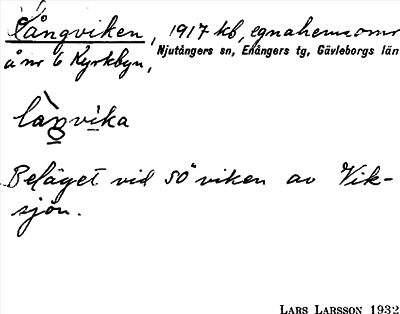 Långviken, 1917 kb, egnahemsomr
å nr 6 Kyrkbyn, Njutångers sn, Enångers tg, Gävleborgs län
làŋvika
Beläget vid SÖ viken av Vik-
sjön.
LARS LARSSON 1932